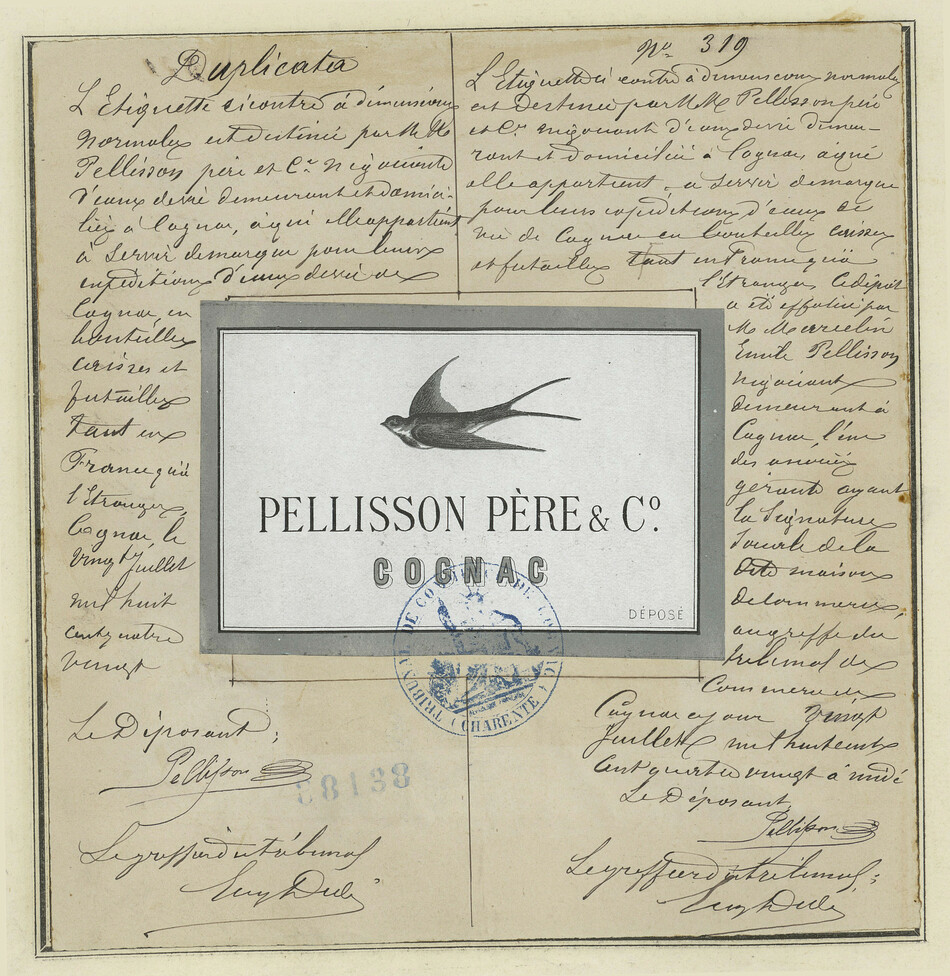 Duplicata
L'Etiquette ci contre à dimensions
normales est destinée par M M
Pellisson père et Cie Négociants
d'eaux de vie demeurant et domici-
liés à Cognac, à qui elle appartient
à servir de marque pour leurs
expéditions d'eaux de vie de
Cognac en
bouteilles
caisses et
futailles
tant en
France qu'à
l'Etranger,
Cognac, le
vingt Juillet
mil huit
cent quatre
vingt
Le Déposant,
Pellisson
Le greffier du tribunal
No 319
L'Etiquette ci contre à dimensions normales
est Destinée par M M Pellisson père
et Cie négociants d'eaux de vie demeu-
rant et domiciliés à Cognac, à qui
elle appartient, à servir de marque
pour leurs expéditions d'eaux de
vie de Cognac en bouteilles caisses
et futailles tant en France qu'à
l'Etranger, Ce dépôt
a été effectué par
M Marcelin
Emile Pellisson
négociant
demeurant à
Cognac, l'un
des associés
gérants ayant
la Signature
Sociale de la
dite maison
de commerce
au greffe du
tribunal de
Commerce de
Cognac ce jour vingt
Juillet mil huit cent
quatre vingt à midi
Le Déposant,
Pellisson
Le greffier du tribunal;
PELLISSON PÈRE & Co.
COGNAC
DÉPOSÉ
TRIBUNAL DE COMMERCE DE COGNAC (CHARENTE)